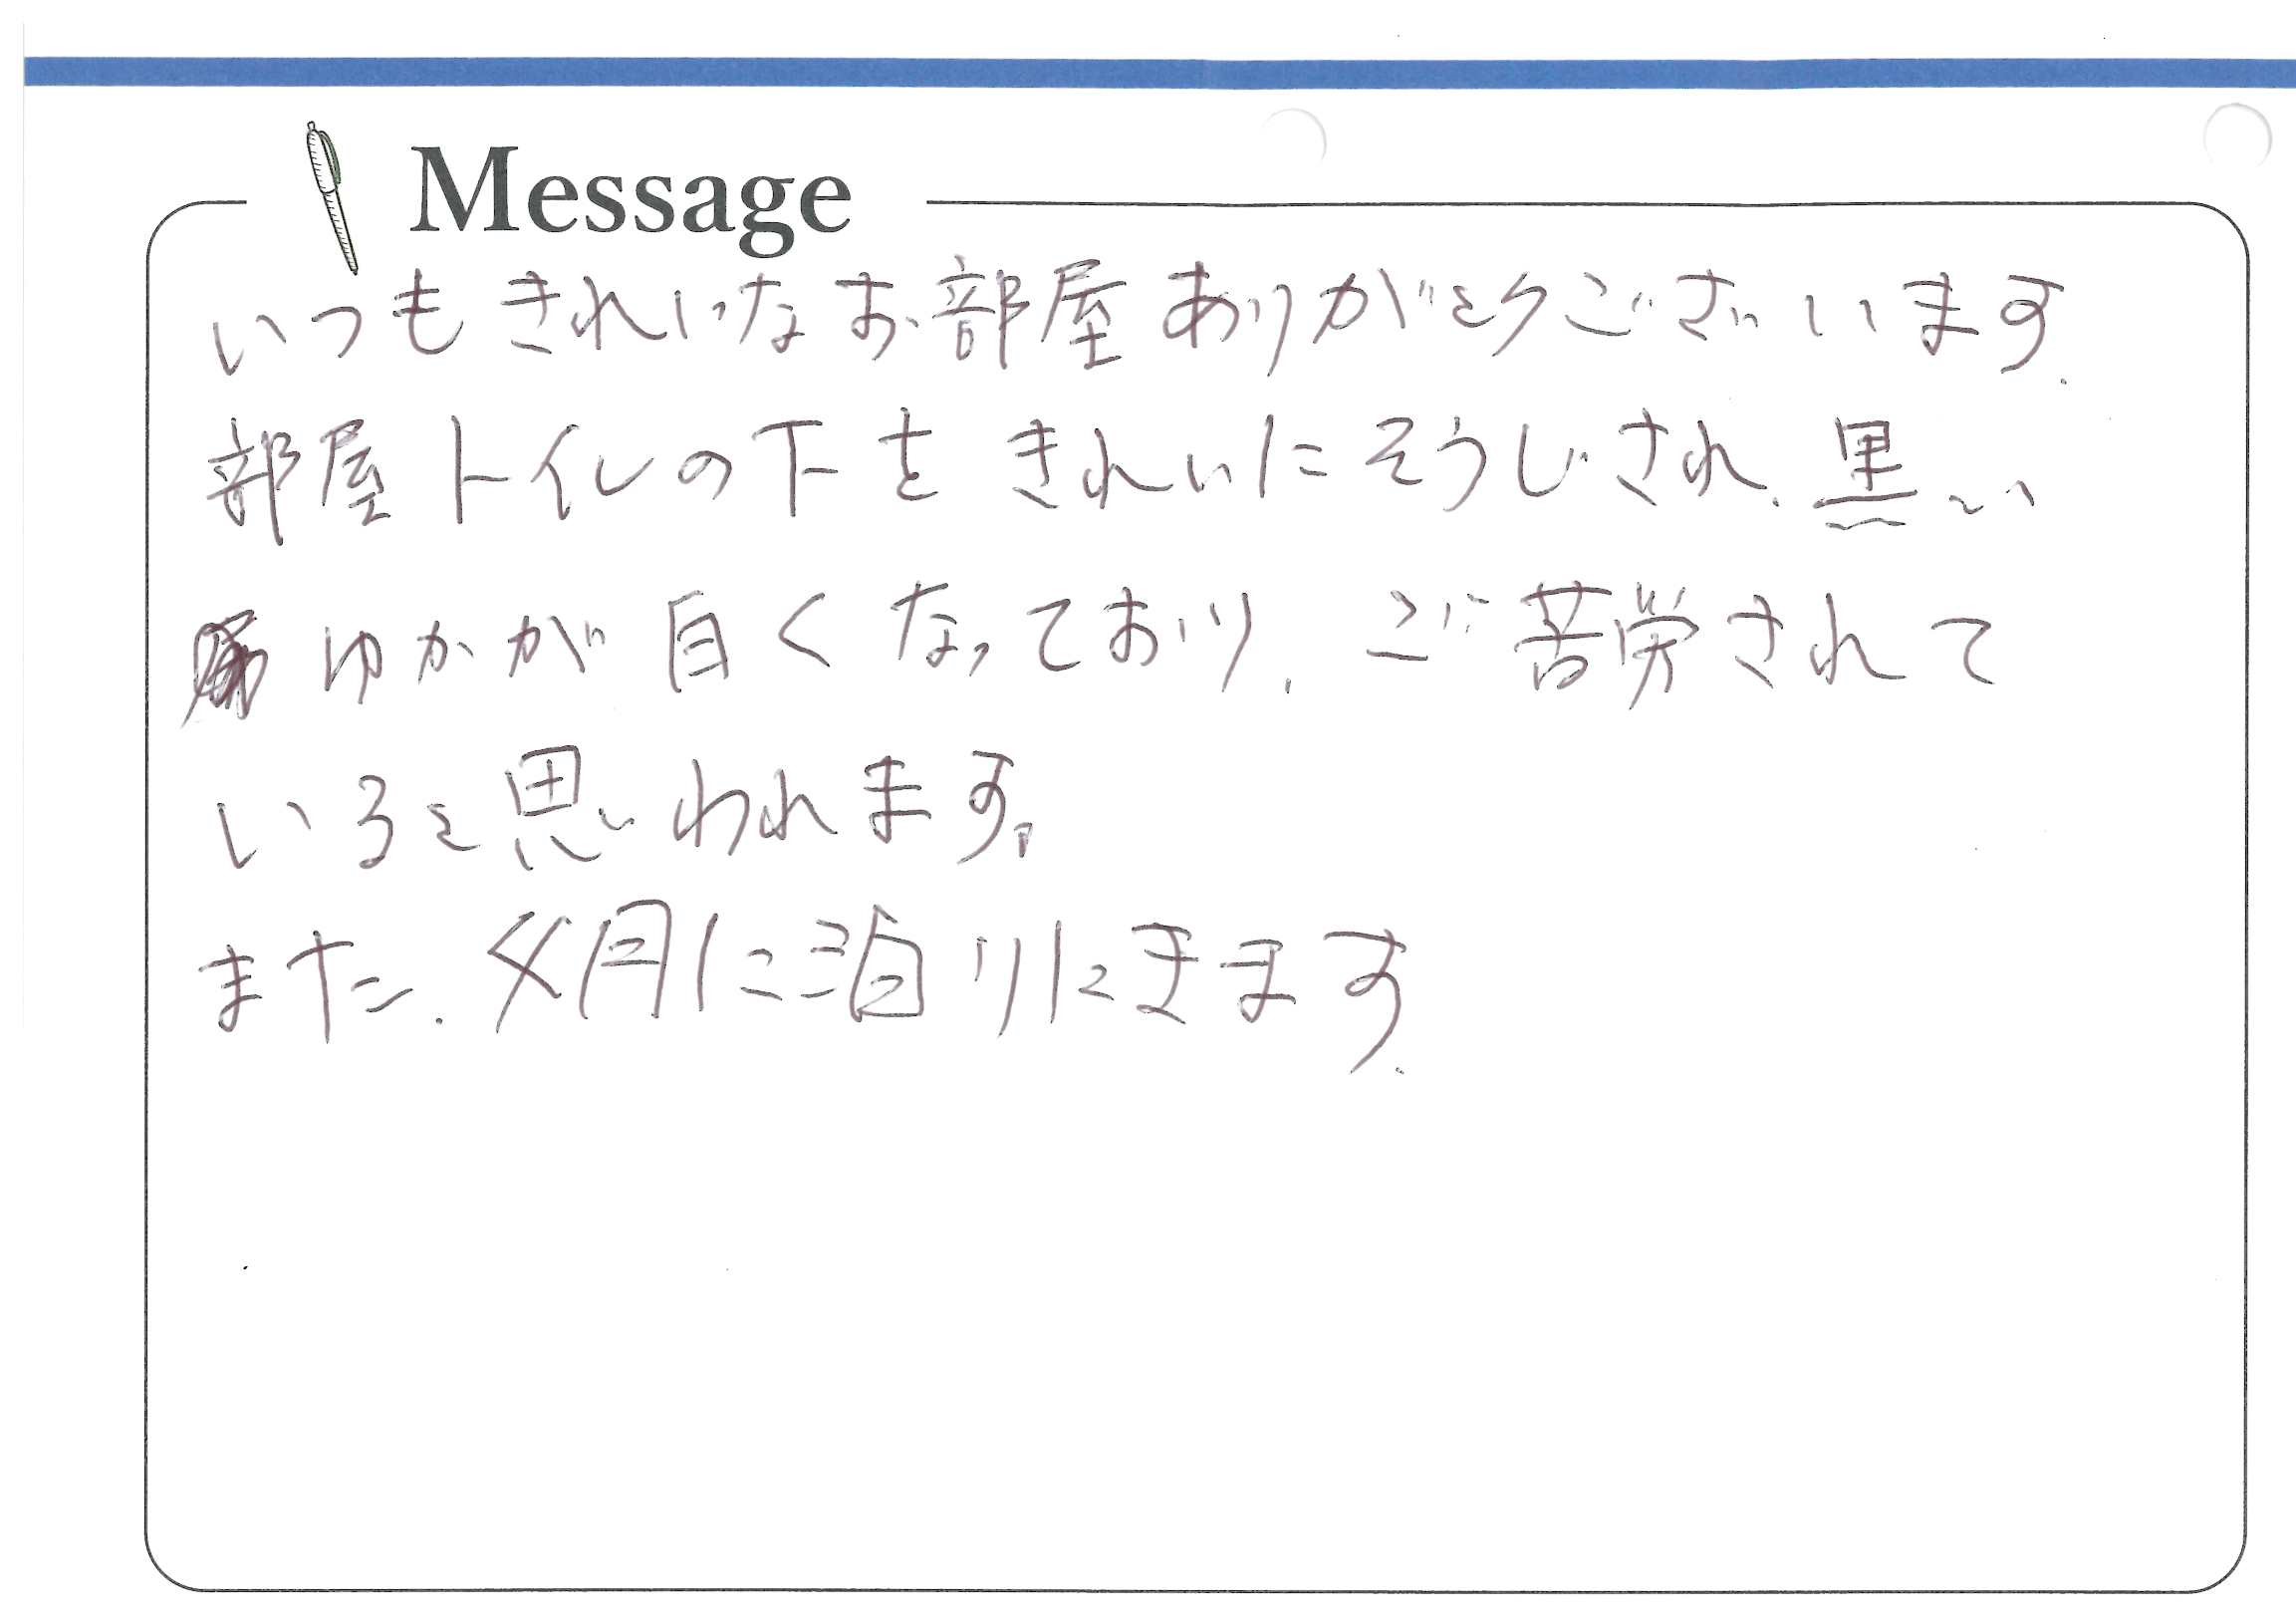 Message
いつもきれいなお部屋ありがとうございます.
部屋トイレの下をきれいにそうじされ、黒い
ゆかが白くなっており、ご苦労されて
いると思われます。
また、4月に泊りにきます.